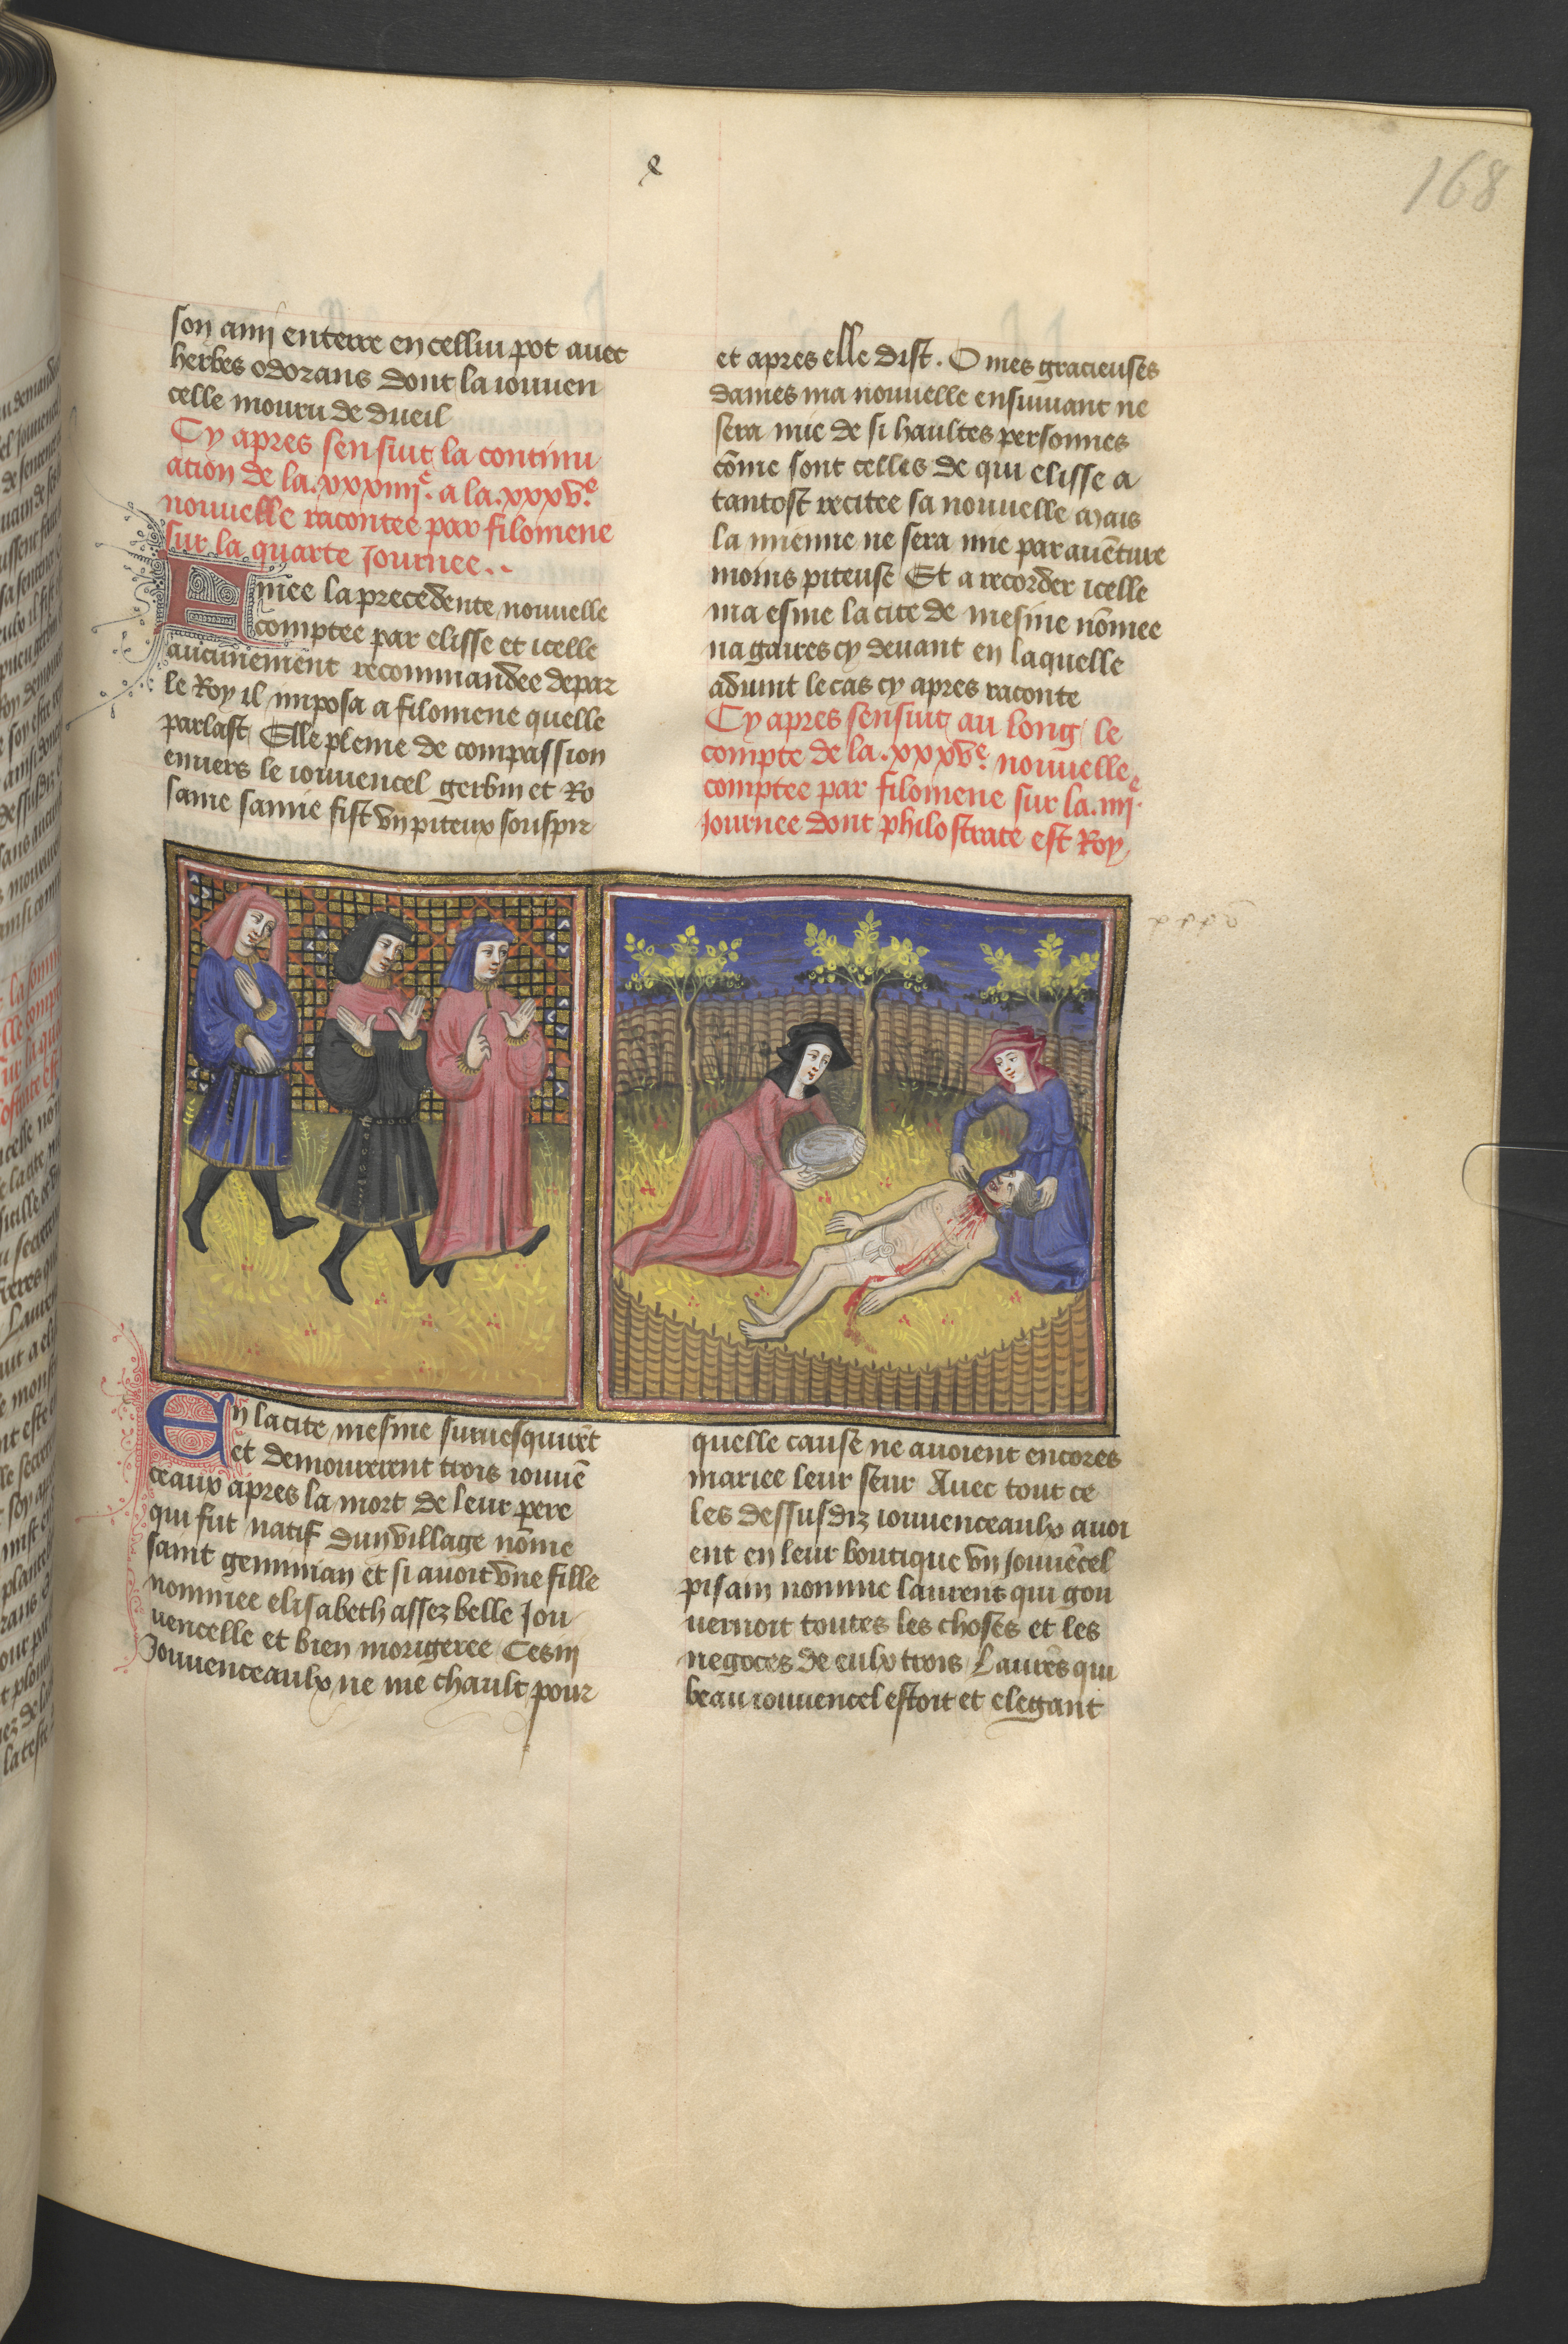 168
son amj enterre en cellui pot auec
herbes odorans dont la iouuen
celle mouru de dueil
Cy apres sensiut la continu
ation de la .xxxiiij.e a la .xxxv.e
nouuelle racontee par filomene
sur la quarte Journee..
Finee la precedente nouuelle
comptee par elisse et icelle
aucunement recommandee depar
le Roy il imposa a filomene quelle
parlast Elle pleine de compassion
enuers le iouuencel gerbin et Ro
saine samie fist vn piteux souspir
et apres elle dist. O mes gracieuses
dames ma nouuelle ensuiuant ne
sera mie de si haultes personnes
cōme sont celles de qui elisse a
tantost recitee sa nouuelle mais
la mienne ne sera mie par auēture
moins piteuse Et a recorder icelle
ma esme la cite de mesine nōmee
na gaires cy deuant en laquelle
aduint le cas cy apres raconte
Cy apres sensiut au long le
compte de la .xxxv.e nouuelle
comptee par filomene sur la .iiij.e
Journee dont philostrate est Roy
En la cite mesine suruesquirēt
et demourerent trois iouuē
ceaux apres la mort de leur pere
qui fut natif dun village nōme
saint geminian et si auoit vne fille
nommee elisabeth assez belle Jou
uencelle et bien morigeree Ces iij
Jouuenceaulx ne me chault pour
quelle cause ne auoient encores
mariee leur seur Auec tout ce
les dessusdiz iouuenceaulx auoi
ent en leur boutique vn Jouuēcel
pisain nomme laurens qui gou
uernoit toutes les choses et les
negoces de eulx trois Laurēs qui
beau iouuencel estoit et elegant